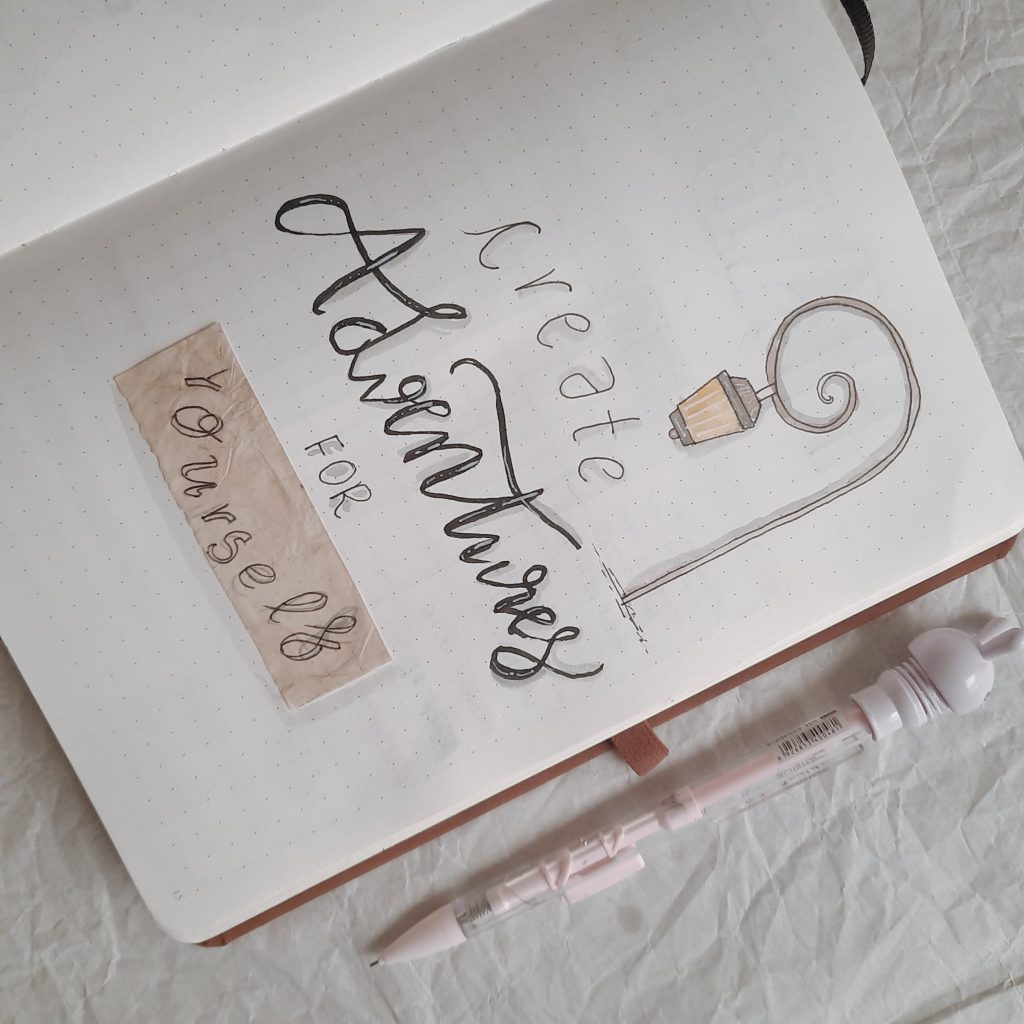 create
Adventures
FOR
yourself